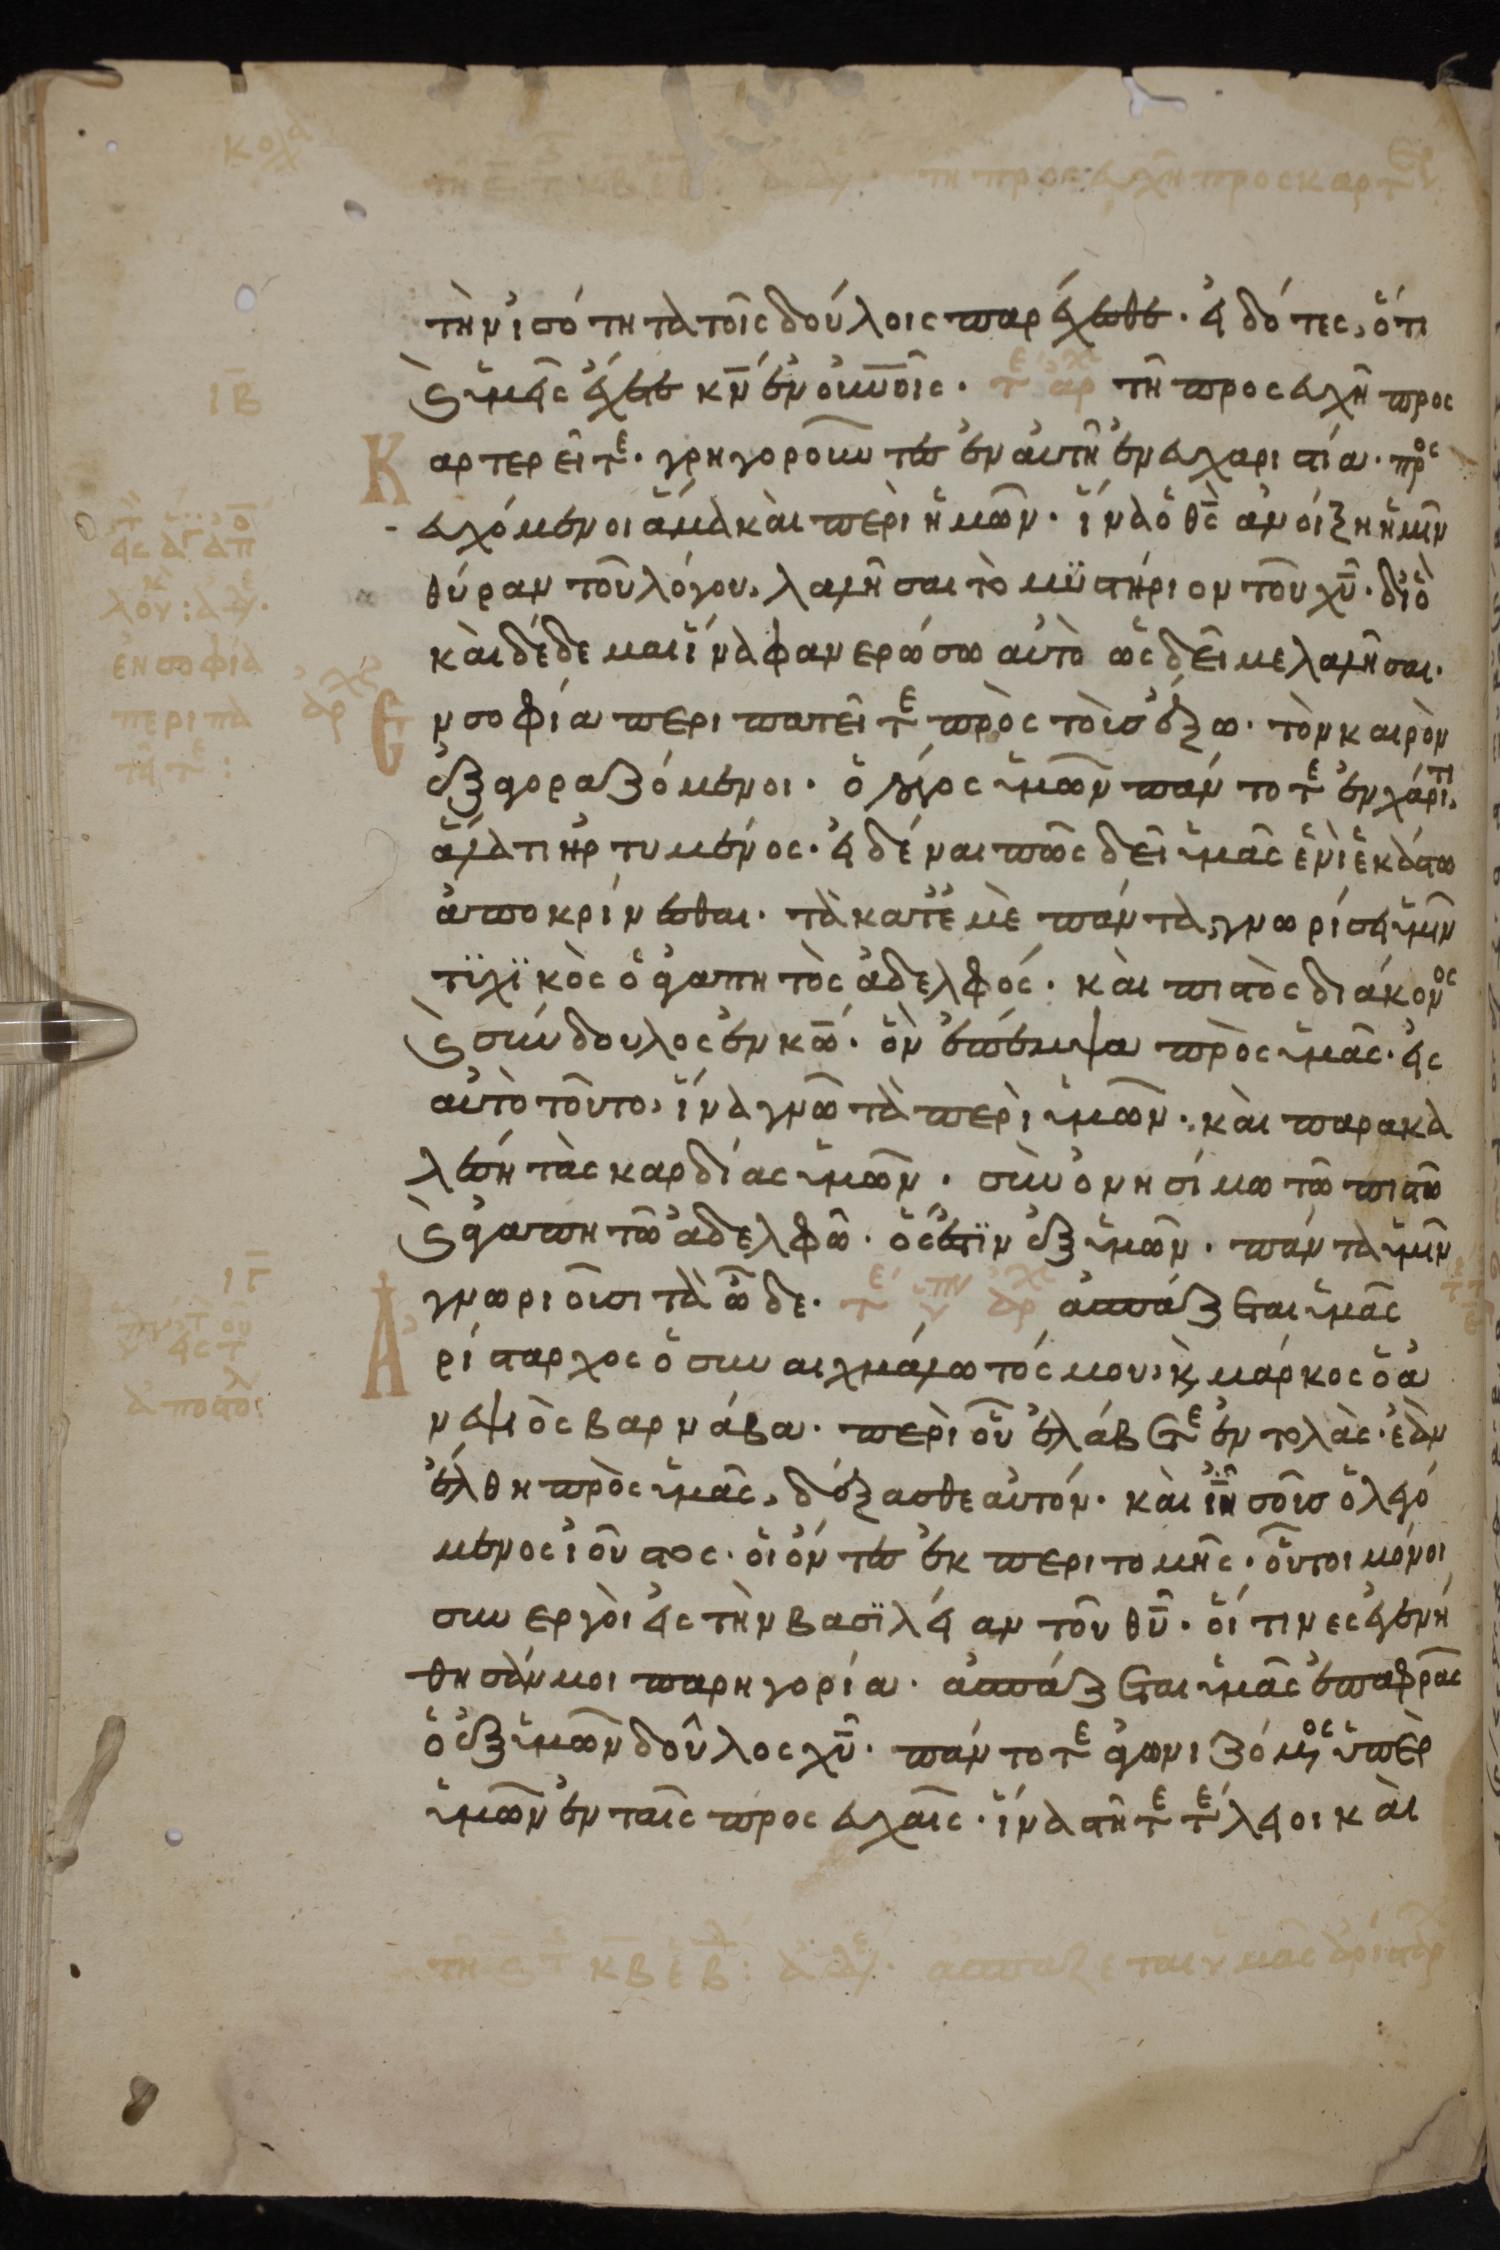 τὴν ἰσότητα τοῖς δούλοις παρέχεσθε· εἰδότες, ὅτι
καὶ ὑμεῖς ἔχετε κ̅ν̅ ἐν οὐ̅ν̅οῖς· τῇ προσευχῇ προσ
Καρτερεῖτε· γρηγοροῦντες ἐν αὐτῇ ἐν εὐχαριστία· προσ
ευχόμενοι ἅμα καὶ περὶ ἡμῶν· ἵνα ὁ θ̅ς̅ ἀνοίξη ἡμῖν
θύραν τοῦ λόγου, λαλῆσαι τὸ μϋστήριον τοῦ χ̅υ̅· δι ὃ
καὶ δέδεμαι ἵνα φανερώσω αὐτὸ ὡς δεῖ με λαλῆσαι·
Εν σοφία περιπατεῖτε πρὸς τοὺς ἔξω· τὸν καιρὸν
ἐξαγοραζόμενοι· ὁ λόγος ὑμῶν πάντοτε ἐν χάριτι,
ἅλατι ἠρτυμένος· εἰδέναι πῶς δεῖ ὑμᾶς ἑνὶ ἑκάστω
ἀποκρίνεσθαι· τὰ κατ ἐμὲ πάντα, γνωρίσει ὑμῖν
τϊχϊκὸς ὁ ἀγαπητὸς ἀδελφός· καὶ πιστὸς διάκονος
καὶ σύνδουλος ἐν κ̅ω̅· ὃν ἔπεμψα πρὸς ὑμᾶς· εἰς
αὐτὸ τοῦτο, ἵνα γνῶ τὰ περὶ ὑμῶν· καὶ παρακα
λέση τὰς καρδίας ὑμῶν· σὺν ὀνησίμω τῶ πιστῶ
καὶ ἀγαπητῶ ἀδελφῶ· ὅς ἐστϊν ἐξ ὑμῶν· πάντα ὑμῖν
γνωριοῦσι τὰ ὧδε· ἀσπάζεται ὑμᾶς
Ἀρίσταρχος ὁ συναιχμάλωτός μου, καὶ μάρκος ὁ ἀ
νεψιὸς βαρνάβα· περὶ οὗ ἐλάβετε ἐντολὰς· ἐὰν
ἔλθη πρὸς ὑμᾶς, δέξασθε αὐτόν· καὶ ἰ̅η̅σοῦς ὁ λεγό
μενος ἰοῦστος· οἱ ὄντες ἐκ περιτομῆς· οὗτοι μόνοι
συνεργοὶ εἰς τὴν βασϊλείαν τοῦ θ̅υ̅· οἵτινες ἐγενή
θησάν μοι παρηγορία· ἀσπάζεται ὑμᾶς ἐπαφρᾶς
ὁ ἐξ ὑμῶν δοῦλος χ̅υ̅· πάντοτε ἀγωνιζόμενος ὑπὲρ
ὑμῶν ἐν ταῖς προσευχαῖς· ἵνα στῆτε τέλειοι καὶ
ι̅β̅
ἐν σοφία
περιπα
τῆτε:
ι̅γ̅
ἀσπαζεται ὑμᾶς ἀρισταρ